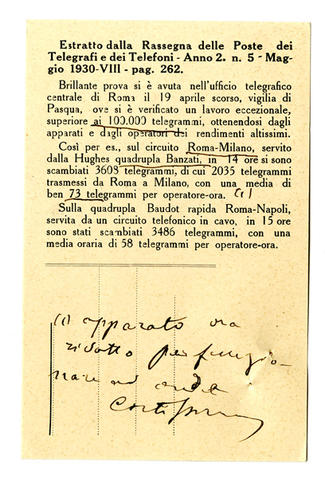 Estratto dalla Rassegna delle Poste dei
Telegrafi e dei Telefoni - Anno 2. n. 5 - Mag-
gio 1930-VIII - pag. 262.
Brillante prova si è avuta nell'ufficio telegrafico
centrale di Roma il 19 aprile scorso, vigilia di
Pasqua, ove si è verificato un lavoro eccezionale,
superiore ai 100.000 telegrammi, ottenendosi dagli
apparati e dagli operatori dei rendimenti altissimi.
Così per es., sul circuito Roma-Milano, servito
dalla Hughes quadrupla Banzati, in 14 ore si sono
scambiati 3608 telegrammi, di cui 2035 telegrammi
trasmessi da Roma a Milano, con una media di
ben 73 telegrammi per operatore-ora. (1)
Sulla quadrupla Baudot rapida Roma-Napoli,
servita da un circuito telefonico in cavo, in 15 ore
sono stati scambiati 3486 telegrammi, con una
media oraria di 58 telegrammi per operatore-ora.
(1) apparato ora
ridotto per funzio-
nare ad onde